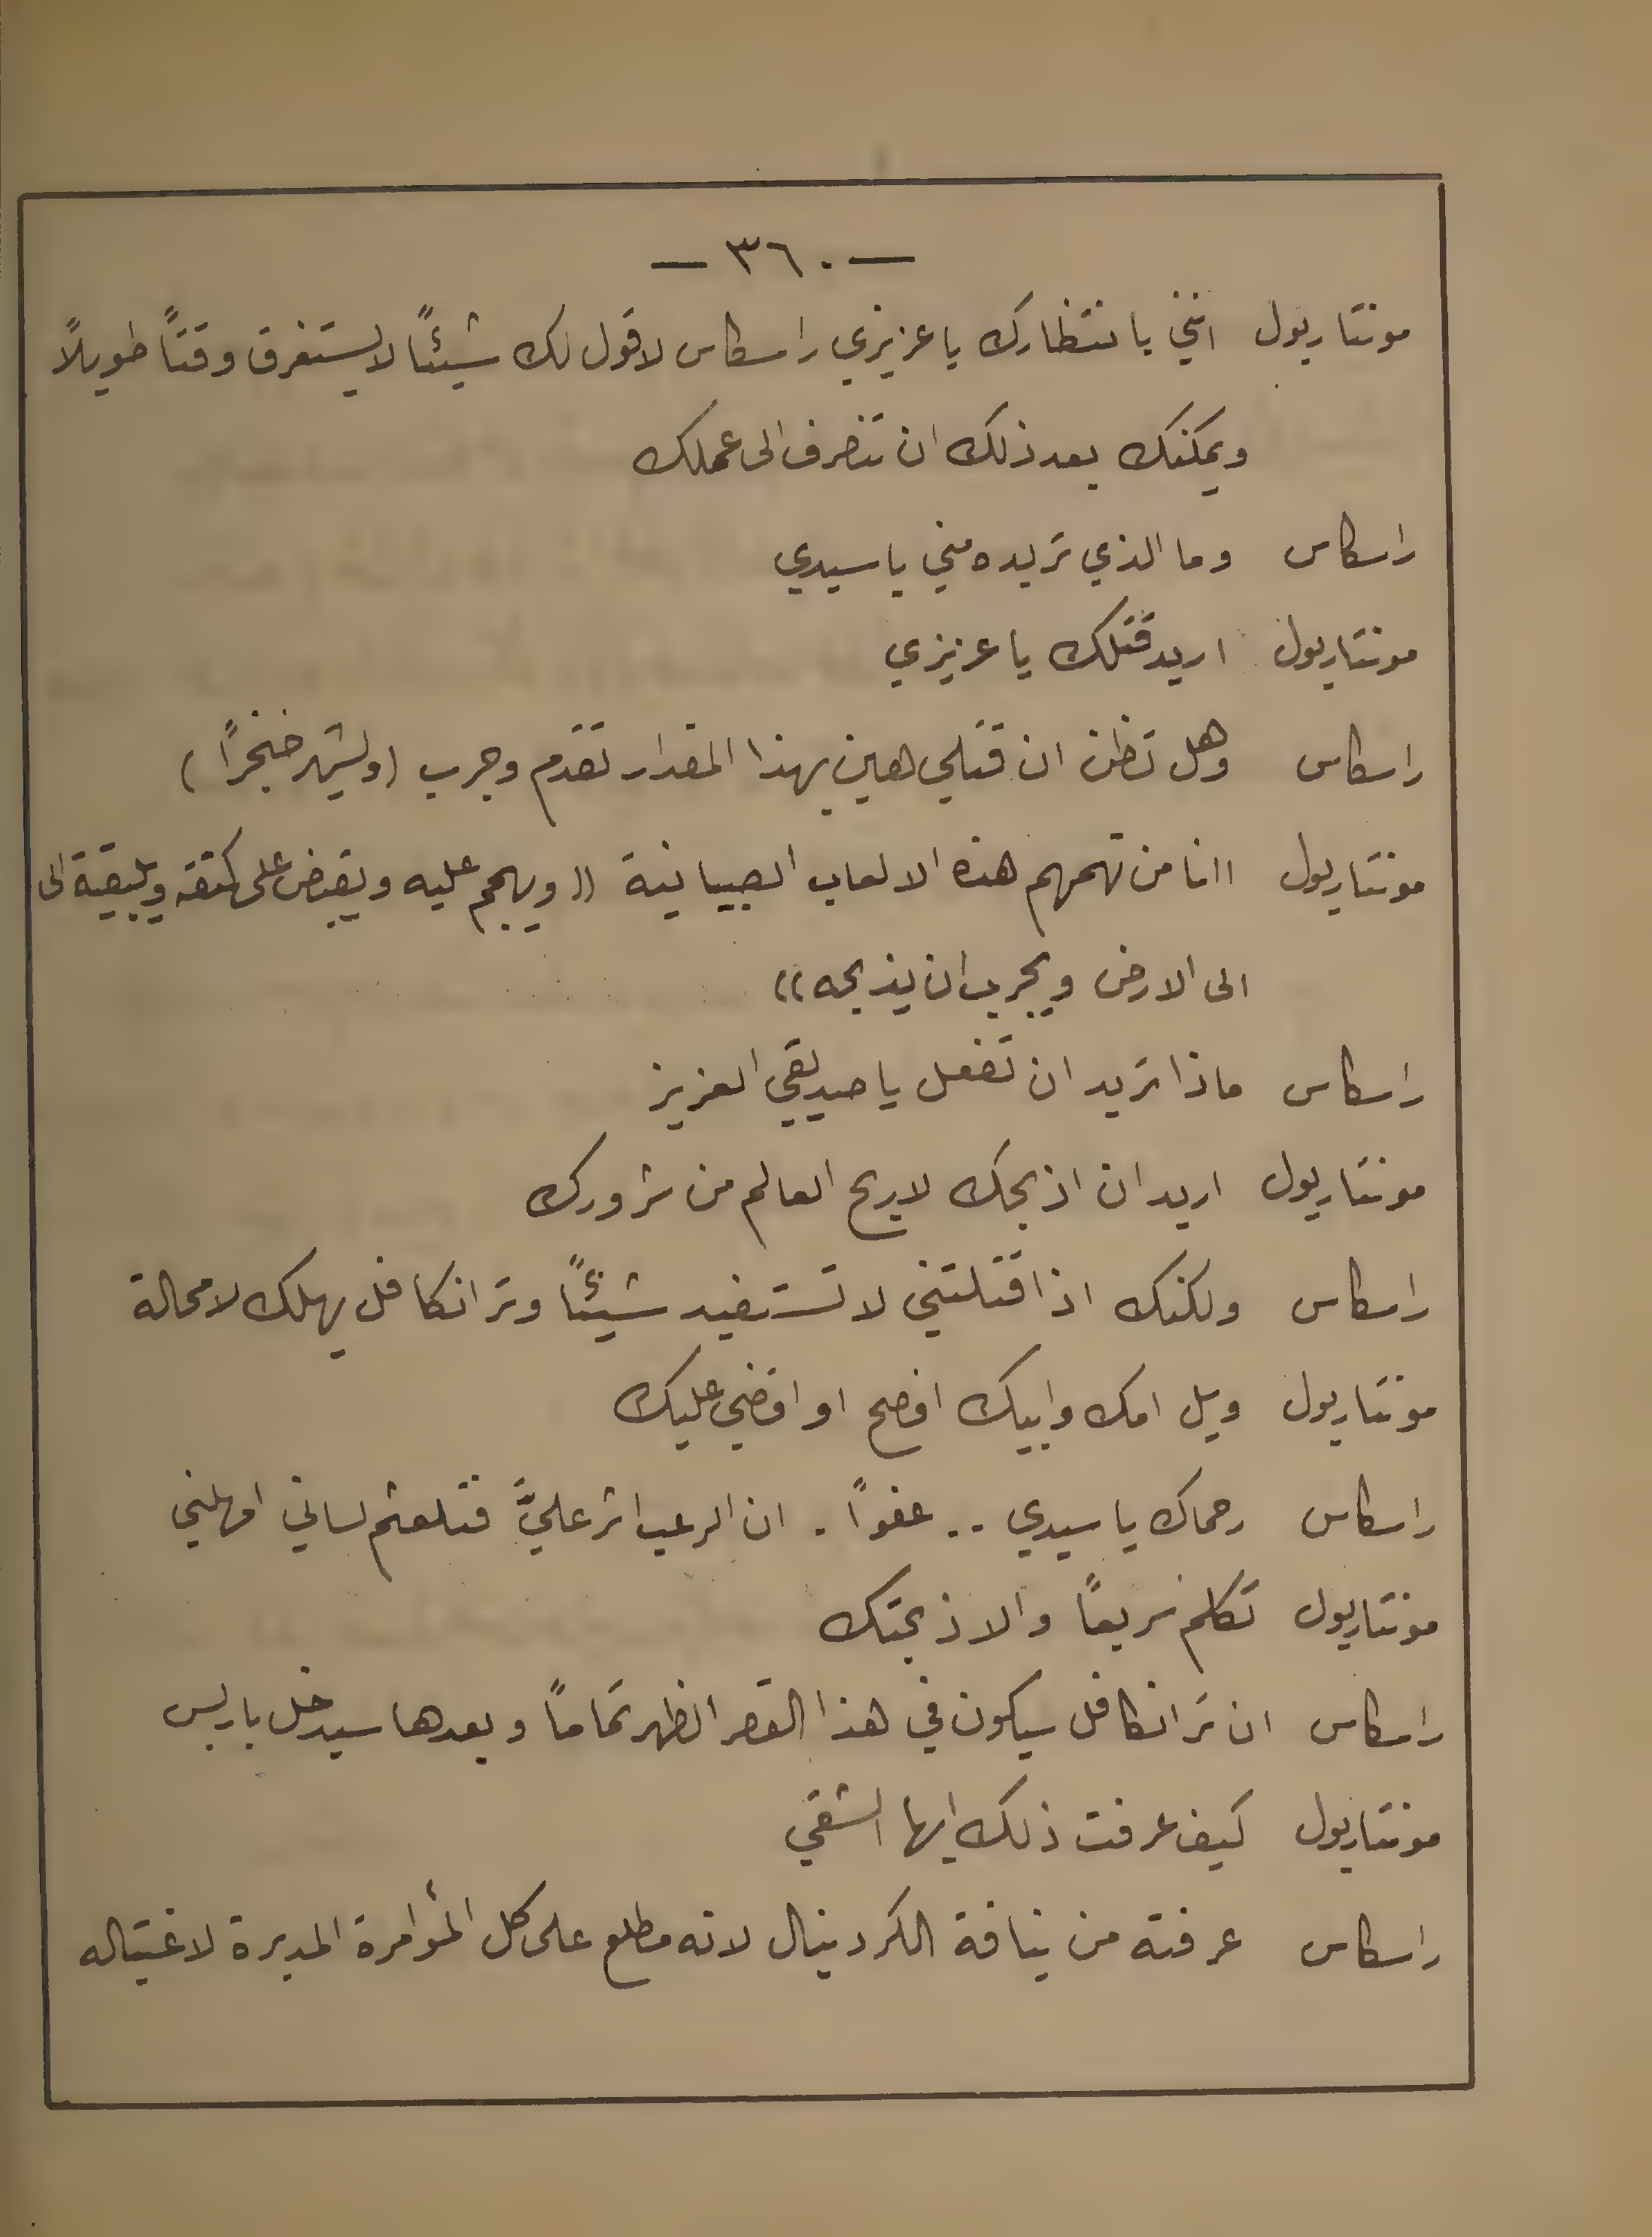 — ٣٦٠ —
مونتاريول انني بانتظارك يا عزيزي راسكاس لاقول لك شيئًا لا يستغرق وقتًا طويلاً
ويمكنك بعد ذلك ان تنصرف الى عملك
راسكاس وما الذي تريده مني يا سيدي
مونتاريول اريد قتلك يا عزيزي
راسكاس وهل تظن ان قتلي هين بهذا المقدار تقدم وجرب (ويشهر خنجرًا)
مونتاريول اانا من تهمهم هذه الالعاب الصبيانية ((ويهجم عليه ويقبض على كتفه ويلقيه الى
الى الارض ويجرب ان يذبحه))
راسكاس ماذا تريد ان تفعل يا صديقي العزيز
مونتاريول اريد ان اذبحك لاريح العالم من شرورك
راسكاس ولكنك اذا قتلتني لا تستفيد شيئًا وترانكافل يهلك لا محالة
مونتاريول ويل امك وابيك افصح او اقضي عليك
راسكاس رحماك يا سيدي .. عفوًا . ان الرعب اثر عليَّ فتلعثم لساني امهلني
مونتاريول تكلم سريعًا والا ذبحتك
راسكاس ان ترانكافل سيكون في هذا القصر الظهر تمامًا وبعدها سيدخل باريس
مونتاريول كيف عرفت ذلك ايها الشقي
راسكاس عرفته من نيافة الكردينال لانه مطلع على كل المؤامرة المدبرة لاغتياله